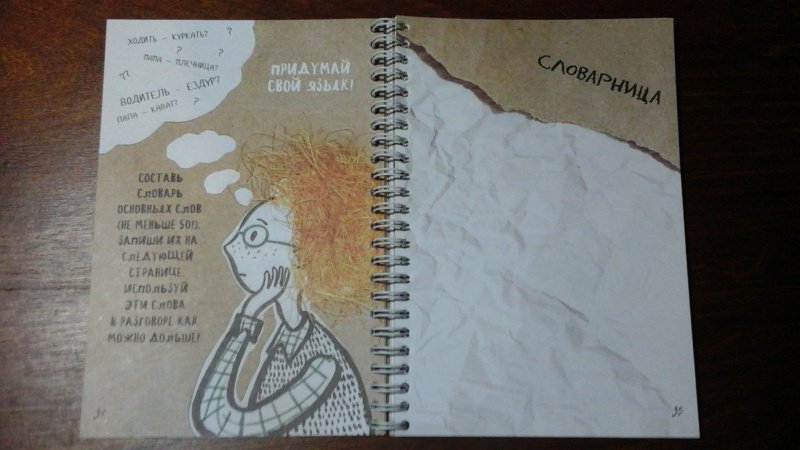 ХОДИТЬ – КУРКАТЬ?
?
?
ПАПА – ПЛЕЧНИЦА?
??
ВОДИТЕЛЬ – ЕЗДУР?
ПАПА – КАВАТ?
?
ПРИДУМАЙ
СВОЙ ЯЗЫК!
СОСТАВЬ
СЛОВАРЬ
ОСНОВНЫХ СЛОВ
(НЕ МЕНЬШЕ 50!).
ЗАПИШИ ИХ НА
СЛЕДУЮЩЕЙ
СТРАНИЦЕ
ИСПОЛЬЗУЙ
ЭТИ СЛОВА
В РАЗГОВОРЕ КАК
МОЖНО ДОЛЬШЕ!
СЛОВАРНИЦА